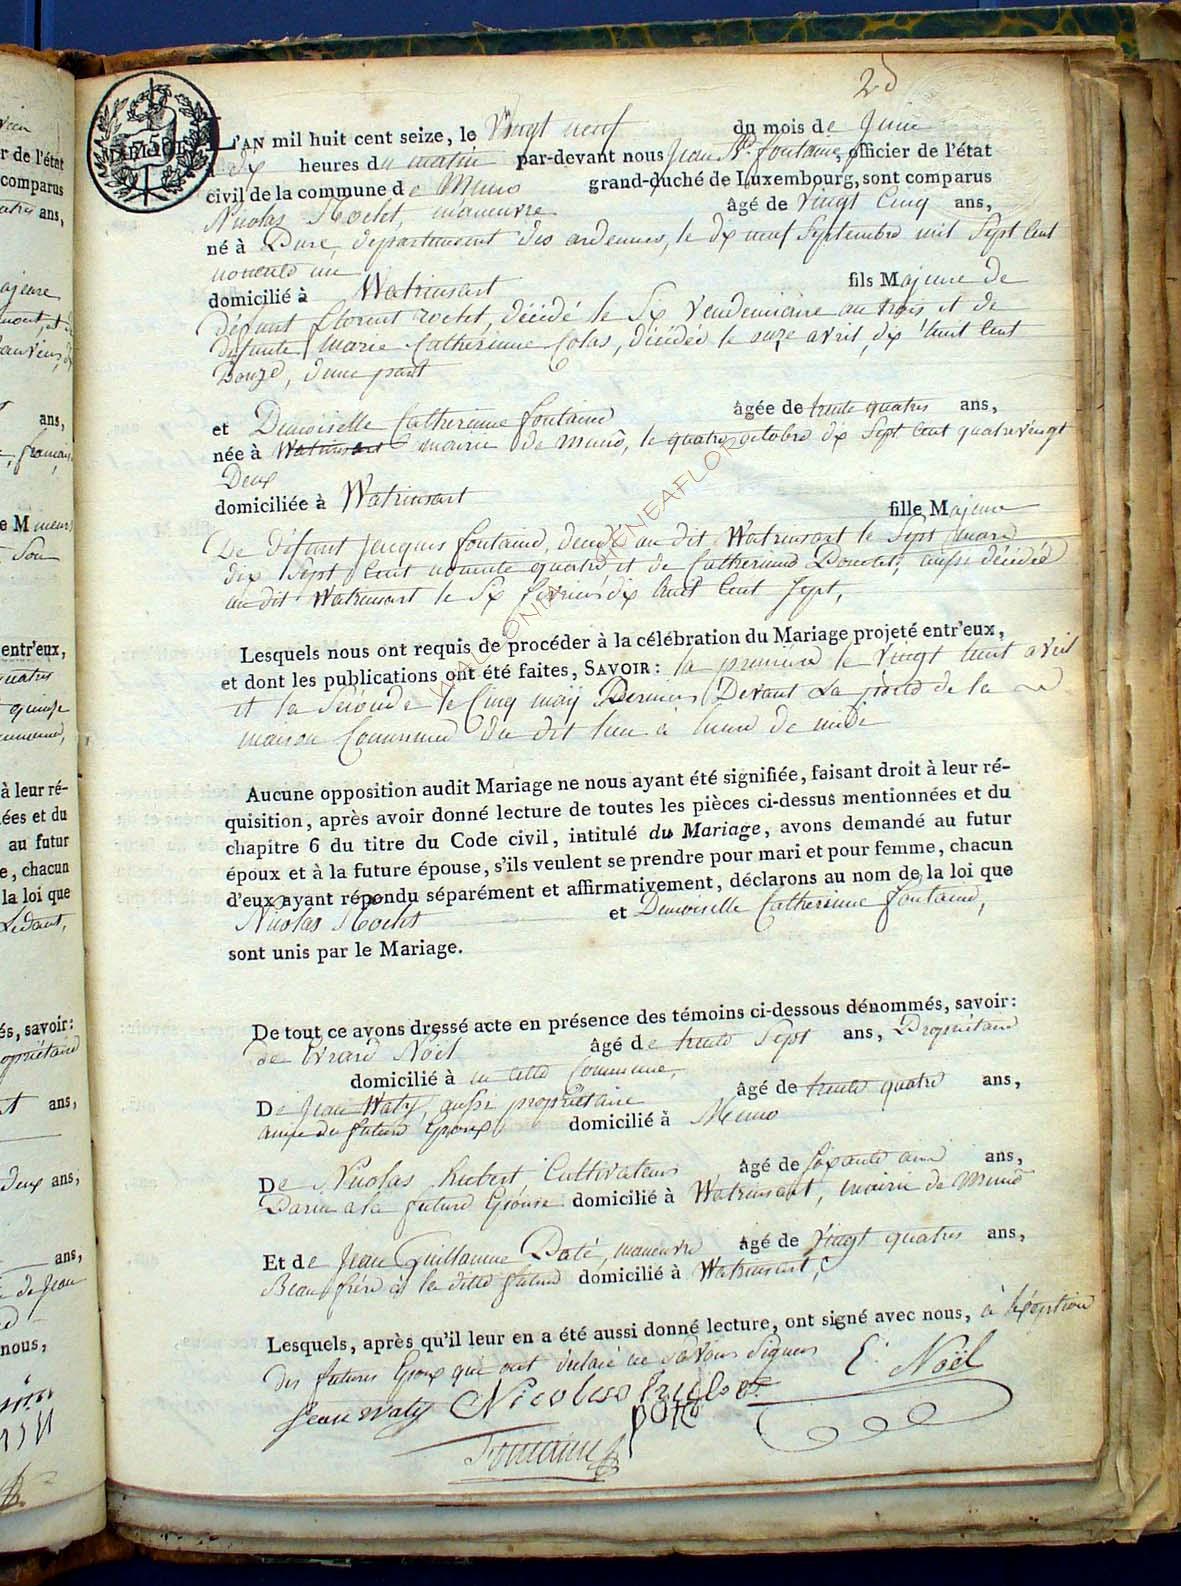 25
L'AN mil huit cent seize, le Vingt neuf du mois de Juin
à dix heures du matin par-devant nous Jean Bte fontaine, officier de l'état
civil de la commune de Muno grand-duché de Luxembourg, sont comparus
Nicolas Roelet, manœuvre âgé de Vingt Cinq ans,
né à Pure, departement des ardennes, le dix neuf Septembre mil Sept Cent
nonente un
domicilié à Watrinsart fils Majeure de
défunt florent roelet, décédé le Six Vendemiaire an trois et de
défunte Marie Catherienne Colas, décédée le onze avril, dix huit Cent
Douze, d'une part
et Demoiselle Catherienne fontaine âgée de trente quatres ans,
née à Watrinsart mairie de Muno, le quatre octobre dix Sept Cent quatrevingt
Deux
domiciliée à Watrinsart fille Majeure
De défunt Jacques fontaine, decédé au dit Watrinsart le Sept mars
dix Sept Cent nonente quatre et de Catherienne Doucet, aussi décédée
au dit Watrinsart le Six février dix huit Cent Sept,
Lesquels nous ont requis de procéder à la célébration du Mariage projeté entr'eux,
et dont les publications ont été faites, SAVOIR: la première le Vingt huit avril
et la Seconde le Cinq maÿ Dernier, Devant La porte de la
maison Commune du dit lieu à heure de midi
Aucune opposition audit Mariage ne nous ayant été signifiée, faisant droit à leur ré-
quisition, après avoir donné lecture de toutes les pièces ci-dessus mentionnées et du
chapitre 6 du titre du Code civil, intitulé du Mariage, avons demandé au futur
époux et à la future épouse, s'ils veulent se prendre pour mari et pour femme, chacun
d'eux ayant répondu séparément et affirmativement, déclarons au nom de la loi que
Nicolas Roelet et Demoiselle Catherienne fontaine,
sont unis par le Mariage.
De tout ce avons dressé acte en présence des témoins ci-dessous dénommés, savoir:
de Evrard Noël âgé de trente Sept ans, Propriétaire
domicilié à en cette Commune,
De Jean Waty, aussi propriétaire âgé de trente quatre ans,
amie du futur Epoux, domicilié à Muno
De Nicolas hubert, Cultivateur âgé de Soixante ans,
Parin a la future Epouse domicilié à Watrinsart, mairie de Muno
Et de Jean Guillaume Poté, manœuvre âgé de Vingt quatres ans,
Beau frére à la ditte future domicilié à Watrinsart,
Lesquels, après qu'il leur en a été aussi donné lecture, ont signé avec nous, à l'exception
des futures Epoux qui ont déclaré ne Savoir Signer
E. Noël
Jean waty Nicolas hubert
poté
Fontaine
WALLONIA GENEAFLOR